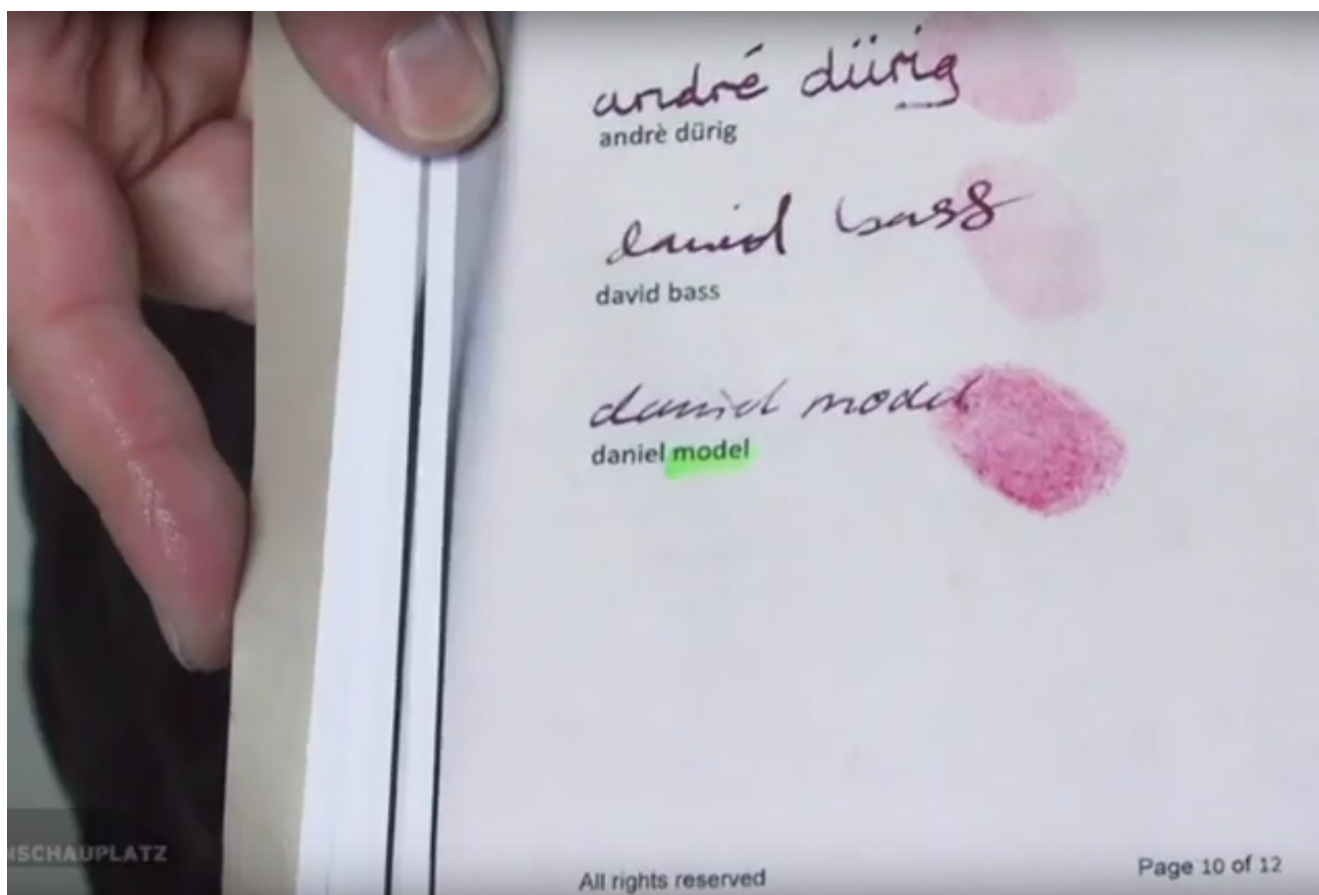 andré dürig
andrè dürig
david bass
david bass
daniel model
daniel model
NSCHAUPLATZ
All rights reserved
Page 10 of 12